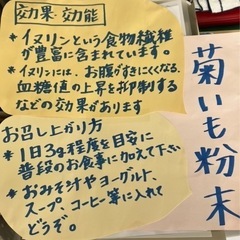 効果・効能
*イヌリンという食物繊維
が豊富に含まれています。
*イヌリンには、お腹がすきにくくなる、
血糖値の上昇を抑制する
などの効果があります
お召し上がり方
*1日3g程度を目安に
普段のお食事に加えて下さい
*おみそ汁やヨーグルト
スープ、コーヒー等に入れて
どうぞ。
菊いも粉末